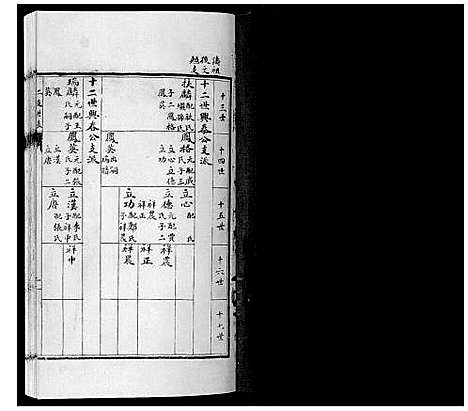 十三世
十四世
十五世
十六世
十七世
十二世興春公支派
扶麟
子二鳳格
鳳英
鳳格元配咸
氏子三
立心立德
立功
鳳英出嗣
瑞麟
立心配
氏
立德元配賈
氏子二
祥晨
祥正
立功配鄭氏
子祥晨
祥晨
祥正
祥晨
十二世興春公支派
瑞麟元配王
氏嗣子
鳳英
鳳英元配張
氏子二
立漢
立唐
立漢配李氏
子祥中
立唐配張氏
祥中